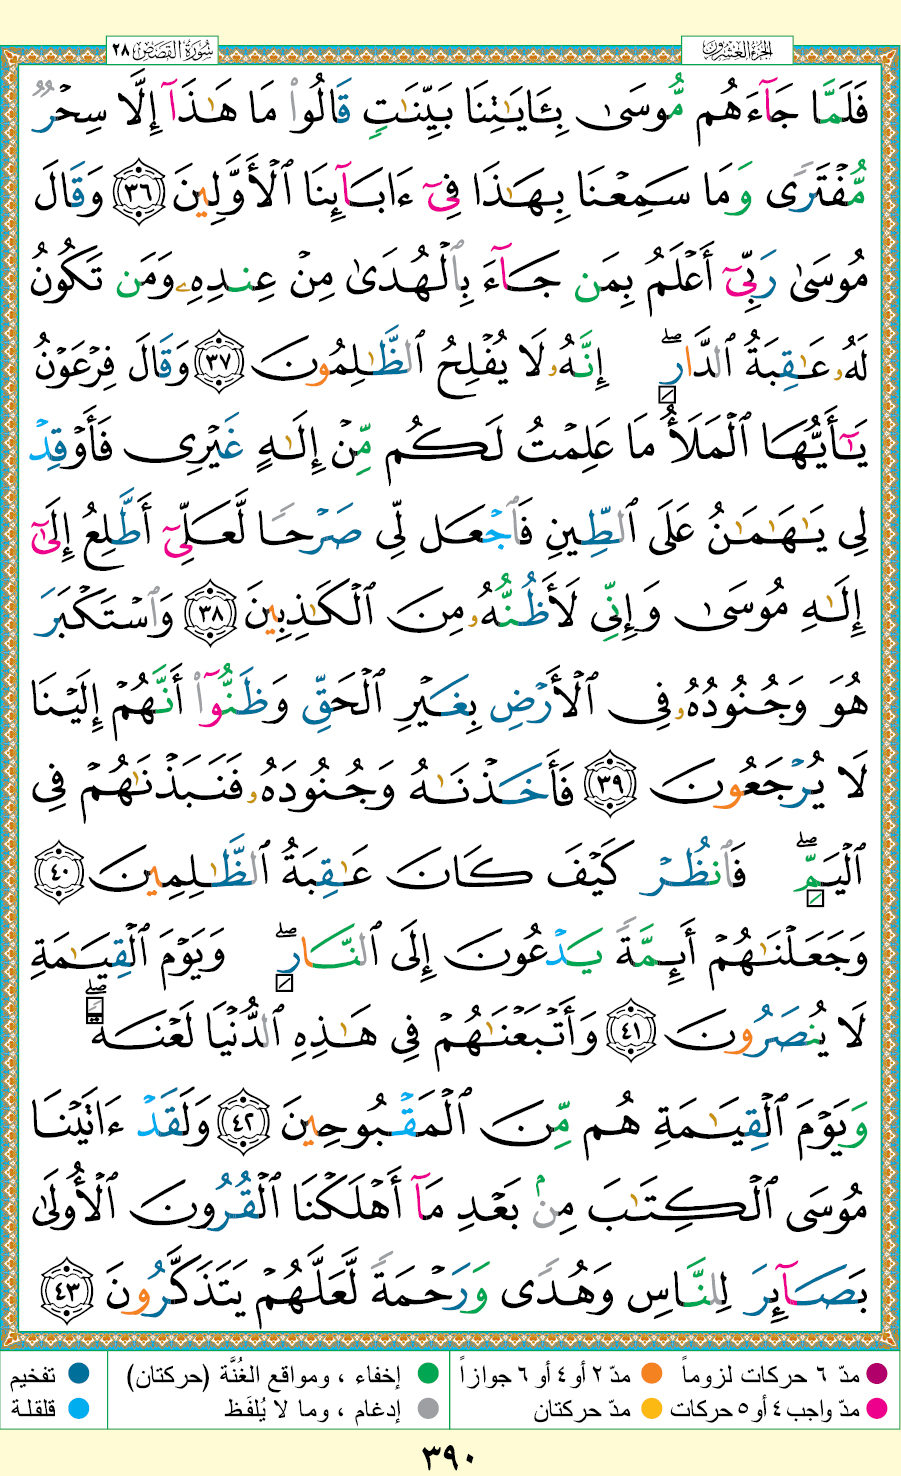 سُورَةُ القَصَصِ ٢٨
الجُزءُ العِشرُون
فَلَمَّا جَآءَهُم مُّوسَىٰ بِـَٔايَـٰتِنَا بَيِّنَـٰتٍ قَالُوا۟ مَا هَـٰذَآ إِلَّا سِحْرٌ
مُّفْتَرًى وَمَا سَمِعْنَا بِهَـٰذَا فِىٓ ءَابَآئِنَا ٱلْأَوَّلِينَ ٣٦ وَقَالَ
مُوسَىٰ رَبِّىٓ أَعْلَمُ بِمَن جَآءَ بِٱلْهُدَىٰ مِنْ عِندِهِۦ وَمَن تَكُونُ
لَهُۥ عَـٰقِبَةُ ٱلدَّارِ ۖ إِنَّهُۥ لَا يُفْلِحُ ٱلظَّـٰلِمُونَ ٣٧ وَقَالَ فِرْعَوْنُ
يَـٰٓأَيُّهَا ٱلْمَلَأُ مَا عَلِمْتُ لَكُم مِّنْ إِلَـٰهٍ غَيْرِى فَأَوْقِدْ
لِى يَـٰهَـٰمَـٰنُ عَلَى ٱلطِّينِ فَٱجْعَل لِّى صَرْحًا لَّعَلِّىٓ أَطَّلِعُ إِلَىٰٓ
إِلَـٰهِ مُوسَىٰ وَإِنِّى لَأَظُنُّهُۥ مِنَ ٱلْكَـٰذِبِينَ ٣٨ وَٱسْتَكْبَرَ
هُوَ وَجُنُودُهُۥ فِى ٱلْأَرْضِ بِغَيْرِ ٱلْحَقِّ وَظَنُّوٓا۟ أَنَّهُمْ إِلَيْنَا
لَا يُرْجَعُونَ ٣٩ فَأَخَذْنَـٰهُ وَجُنُودَهُۥ فَنَبَذْنَـٰهُمْ فِى
ٱلْيَمِّ ۖ فَٱنظُرْ كَيْفَ كَانَ عَـٰقِبَةُ ٱلظَّـٰلِمِينَ ٤٠
وَجَعَلْنَـٰهُمْ أَئِمَّةً يَدْعُونَ إِلَى ٱلنَّارِ ۖ وَيَوْمَ ٱلْقِيَـٰمَةِ
لَا يُنصَرُونَ ٤١ وَأَتْبَعْنَـٰهُمْ فِى هَـٰذِهِ ٱلدُّنْيَا لَعْنَةً ۖ
وَيَوْمَ ٱلْقِيَـٰمَةِ هُم مِّنَ ٱلْمَقْبُوحِينَ ٤٢ وَلَقَدْ ءَاتَيْنَا
مُوسَى ٱلْكِتَـٰبَ مِنۢ بَعْدِ مَآ أَهْلَكْنَا ٱلْقُرُونَ ٱلْأُولَىٰ
بَصَآئِرَ لِلنَّاسِ وَهُدًى وَرَحْمَةً لَّعَلَّهُمْ يَتَذَكَّرُونَ ٤٣
مدّ ٦ حركات لزوماً مدّ ٢ أو ٤ أو ٦ جوازاً إخفاء ، ومواقع الغُنَّة (حركتان) تفخيم
مدّ واجب ٤ أو ٥ حركات مدّ حركتان إدغام ، وما لا يُلفَظ قلقلة
٣٩٠